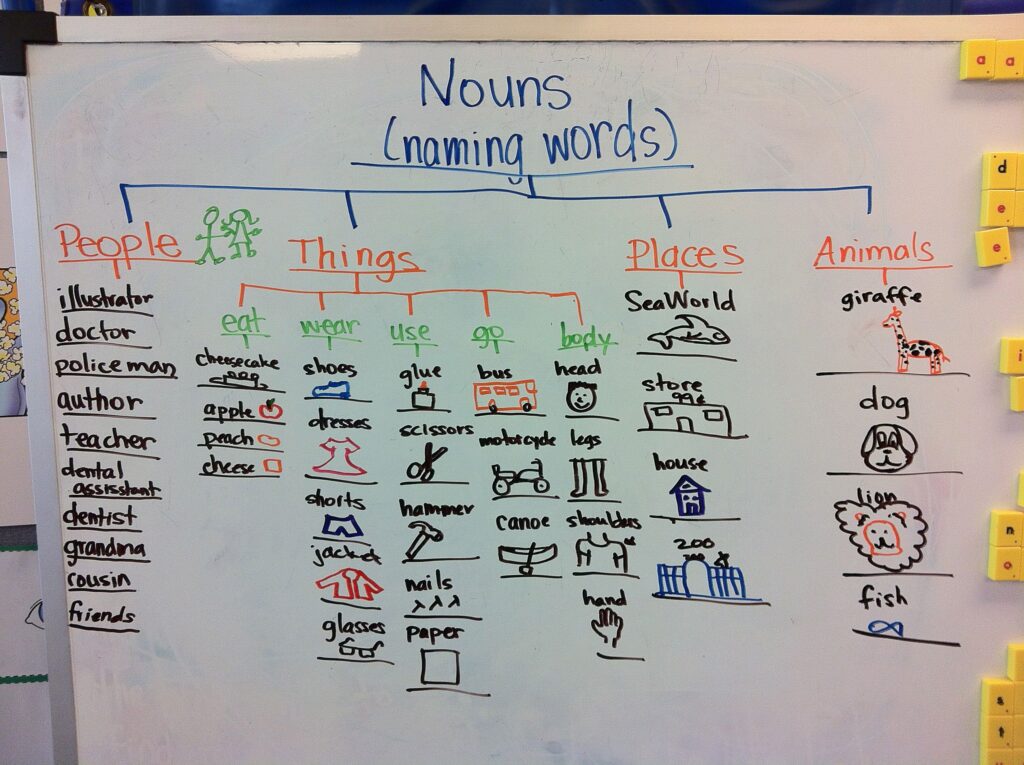 Nouns
(naming words)
People
illustrator
doctor
policeman
author
teacher
dental
assistant
dentist
grandma
cousin
friends
Things
eat
cheesecake
apple
peach
cheese
wear
shoes
dresses
shorts
jacket
glasses
use
glue
scissors
hammer
nails
paper
go
bus
motorcycle
canoe
body
head
legs
shoulders
hand
Places
SeaWorld
store
99¢
house
zoo
Animals
giraffe
dog
lion
fish
a a
d
e
e
i
n
s
t